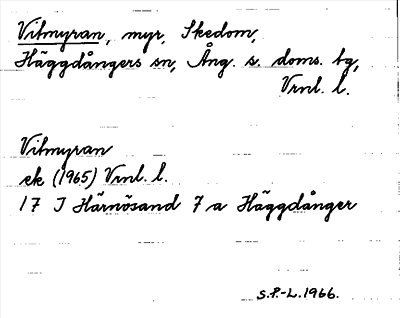 Vitmyran, myr, Skedom,
Häggdångers sn, Ång. s. doms. tg,
Vrnl. l.
Vitmyran
ek (1965) Vrnl. l.
17 J Härnösand 7 a Häggdånger
S.P.-L. 1966.